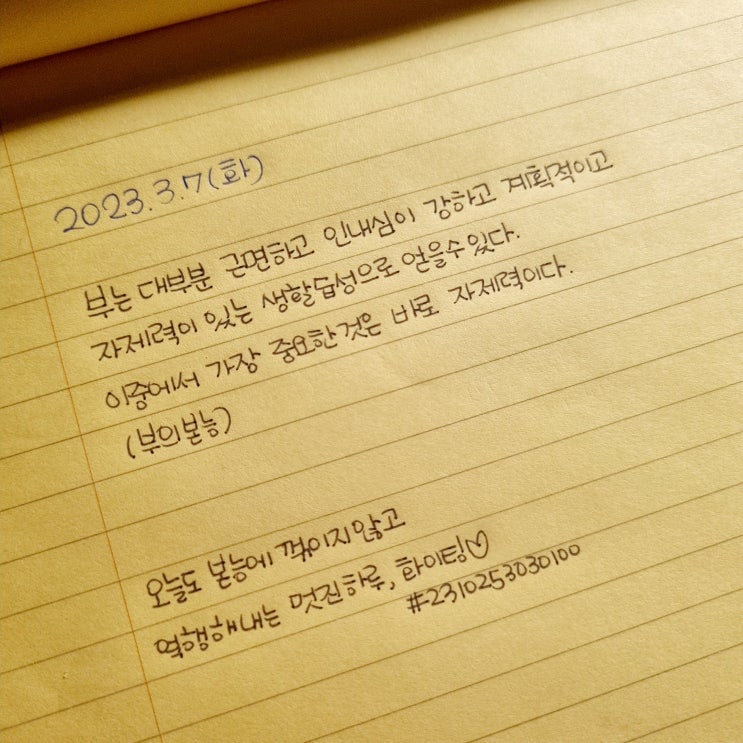 2023.3.7(화)
부는 대부분 근면하고 인내심이 강하고 계획적이고
자제력이 있는 생활습성으로 얻을수있다.
이중에서 가장 중요한것은 바로 자제력이다.
(부의본능)
오늘도 본능에 꺾이지않고
역행해내는 멋진하루, 화이팅♡
#2310253030100